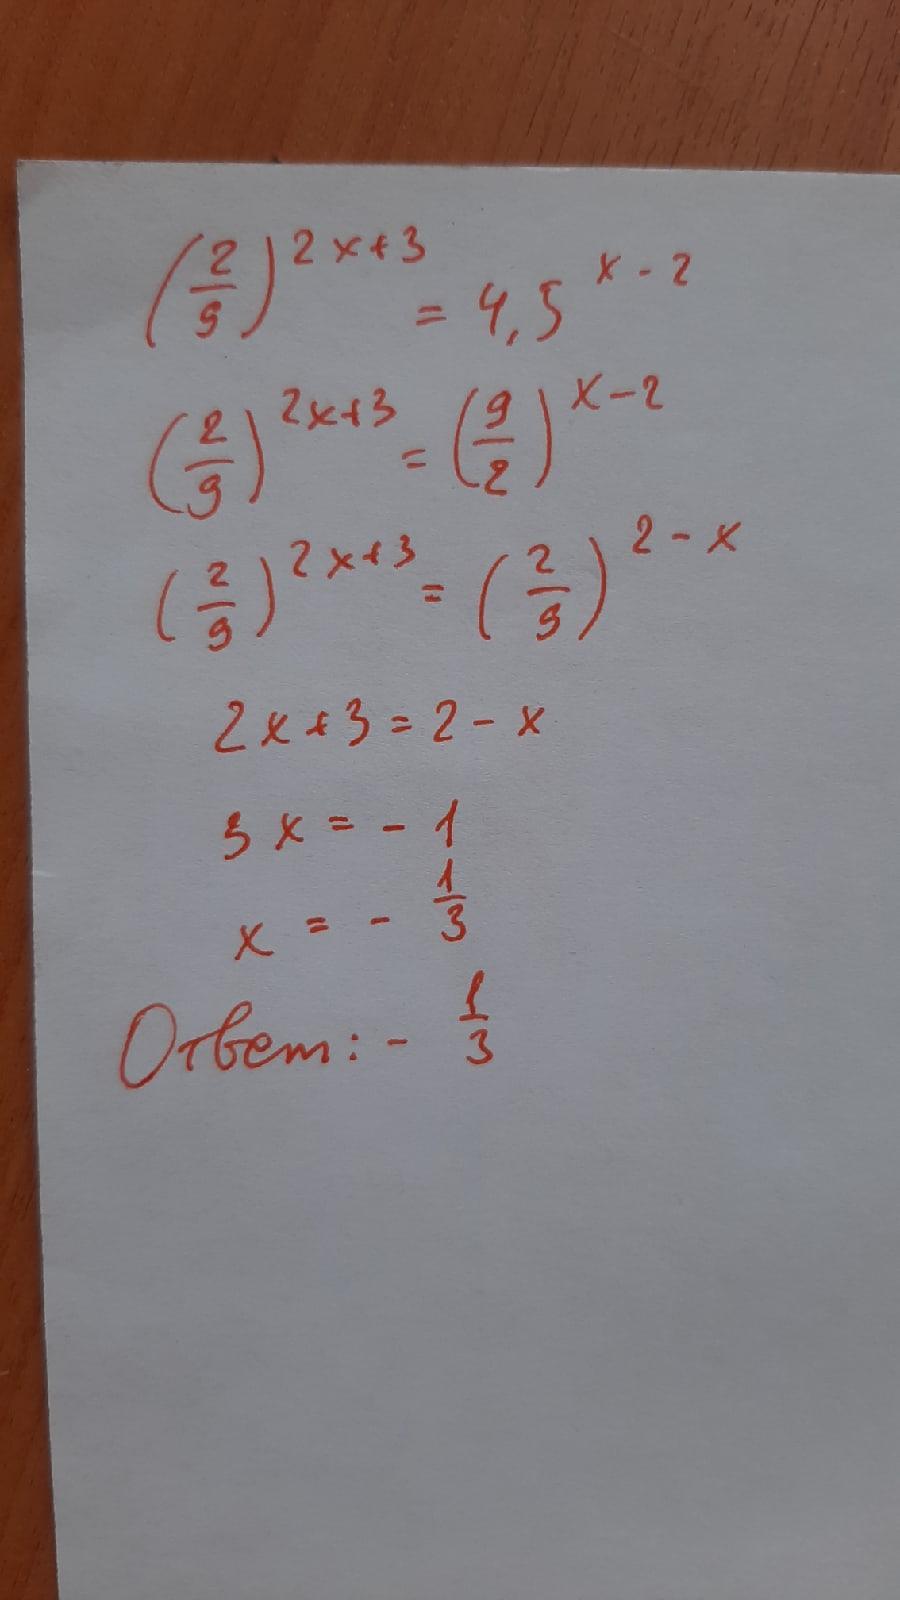 (2/9)^(2x+3) = 4,5^(x-2)
(2/9)^(2x+3) = (9/2)^(x-2)
(2/9)^(2x+3) = (2/9)^(2-x)
2x+3=2-x
3x = -1
x = - 1/3
Ответ: - 1/3